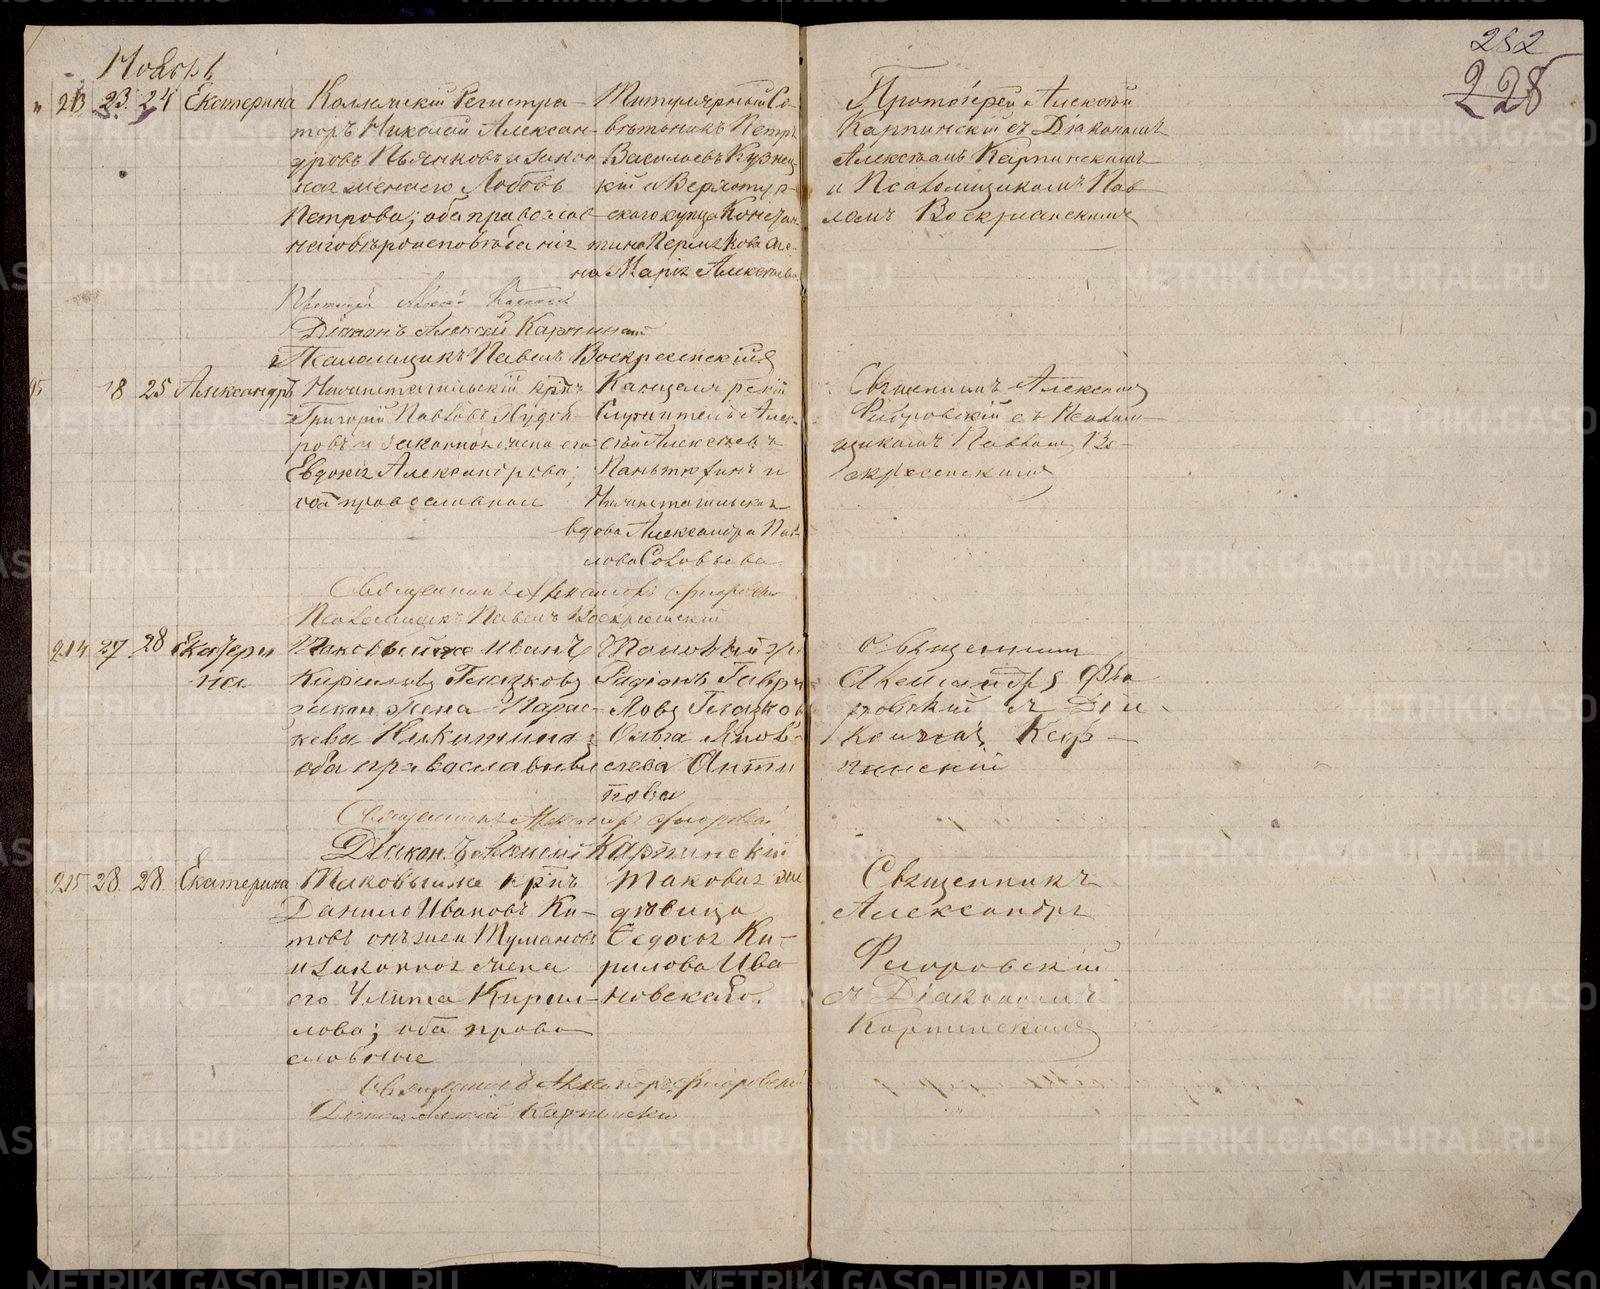 Ноябрь
252
228
213 23. 24 Екатерина
Коллежскій Регистра-
торъ Николай Алексан-
дровъ Пьянковъ и закон
ная жена его Любовь
Петрова; оба православ
наго вѣроисповѣданія
Титулярный Со-
вѣтникъ Петръ
Васильевъ Кузнец
кій и Верхотур-
скаго купца Констан
тина Пермякова же-
на Марія Алексѣева
Протоіерей Алексѣй
Карпинскій съ Діакономъ
Алексѣемъ Карпинскимъ
и Псаломщикомъ Пав
ломъ Воскресенскимъ
Діаконъ Алексѣй Карпинскій
Псаломщикъ Павелъ Воскресенскій
18 25 Александръ
Нижнетагильскій крнъ
Григорій Павловъ Худоя-
ровъ и законная жена его
Евдокія Александрова;
оба православные
Канцелярскій
Служитель Алек-
сѣй Алексѣевъ
Паньтюфинъ и
Нижнетагильская
вдова Александра Пав-
лова Соловьева
Священникъ Александръ
Флоровскій съ Псалом-
щикомъ Павломъ Во-
скресенскимъ
Священникъ Александръ Флоровскій
Псаломщикъ Павелъ Воскресенскій
214 27 28 Екатери
на
Таковый же Иванъ
Кириловъ Глазковъ
закон жена Парас-
кева Никитина;
оба православные
Таковый же
Радіонъ Гаври
ловъ Глазков
Ольга Яков-
лева Анти
пова
Священник
Александръ Фло
ровскій съ Діа-
кономъ Кар-
пинскій
Священникъ Александръ Флоровскій
Діаконъ Алексѣй Карпинскій
215 28. 28 Екатерина
Таковый же крнъ
Данило Ивановъ Ки-
товъ онъ же и Тумановъ
и законная жена
его Улита Кирил-
лова; оба право
славные
Таковая же
дѣвица
Ѳедосья Ки-
рилова Ива
новская.
Священникъ
Александръ
Флоровскій
съ Діакономъ
Карпинскимъ
Священникъ Александръ Флоровскій
Діаконъ Алексѣй Карпинскій
METRIKI.GASO-URAL.RU